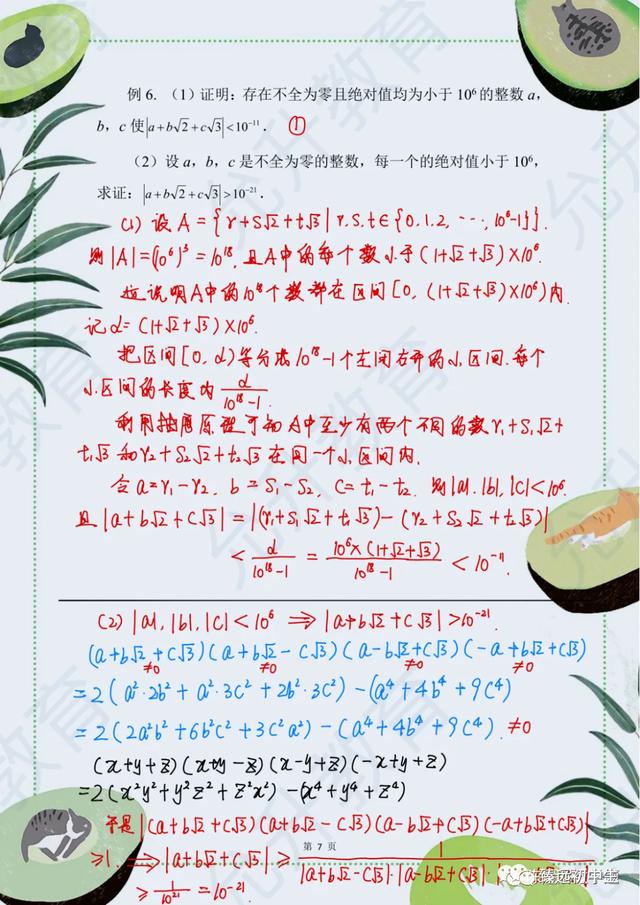 例 6.（1）证明：存在不全为零且绝对值均为小于 10⁶ 的整数 a，
b，c 使|a+b√2+c√3|<10⁻¹¹． ①
（2）设 a，b，c 是不全为零的整数，每一个的绝对值小于 10⁶，
求证：|a+b√2+c√3|>10⁻²¹．
(1) 设 A = {r+s√2+t√3 | r.s.t∈{0.1.2, ⋯, 10⁶-1}}.
则 |A|=(10⁶)³ = 10¹⁸, 且A中的每个数小于(1+√2+√3)×10⁶.
这说明A中的10¹⁸个数都在区间[0, (1+√2+√3)×10⁶)内.
记 α= (1+√2+√3)×10⁶.
把区间[0, α)等分成10¹⁸-1个左闭右开的小区间. 每个
小区间的长度为 α/(10¹⁸-1).
利用抽屉原理可知 A中至少有两个不同的数 r₁+s₁√2+
t₁√3 和 r₂+s₂√2+t₂√3 在同一个小区间内.
令 a=r₁-r₂, b=s₁-s₂, c=t₁-t₂. 则|a|.|b|,|c|<10⁶.
且|a+b√2+c√3| = |(r₁+s₁√2+t₁√3)-(r₂+s₂√2+t₂√3)|
< α/(10¹⁸-1) = 10⁶×(1+√2+√3)/(10¹⁸-1) < 10⁻¹¹.
(2) |a|,|b|,|c|<10⁶ ⟹ |a+b√2+c√3|>10⁻²¹.
(a+b√2+c√3)(a+b√2-c√3)(a-b√2+c√3)(-a+b√2+c√3)
≠0 ≠0 ≠0 ≠0
=2(a²·2b²+a²·3c²+2b²·3c²)-(a⁴+4b⁴+9c⁴)
=2(2a²b²+6b²c²+3c²a²)-(a⁴+4b⁴+9c⁴). ≠0
(x+y+z)(x+y-z)(x-y+z)(-x+y+z)
=2(x²y²+y²z²+z²x²)-(x⁴+y⁴+z⁴)
于是|(a+b√2+c√3)(a+b√2-c√3)(a-b√2+c√3)(-a+b√2+c√3)|
第 7 页
≥1. ⟹ |a+b√2+c√3| ≥ 1/|a+b√2-c√3|·|a-b√2+c√3|·
≥ 1/10²¹ = 10⁻²¹.
臻远初中生
允升教育